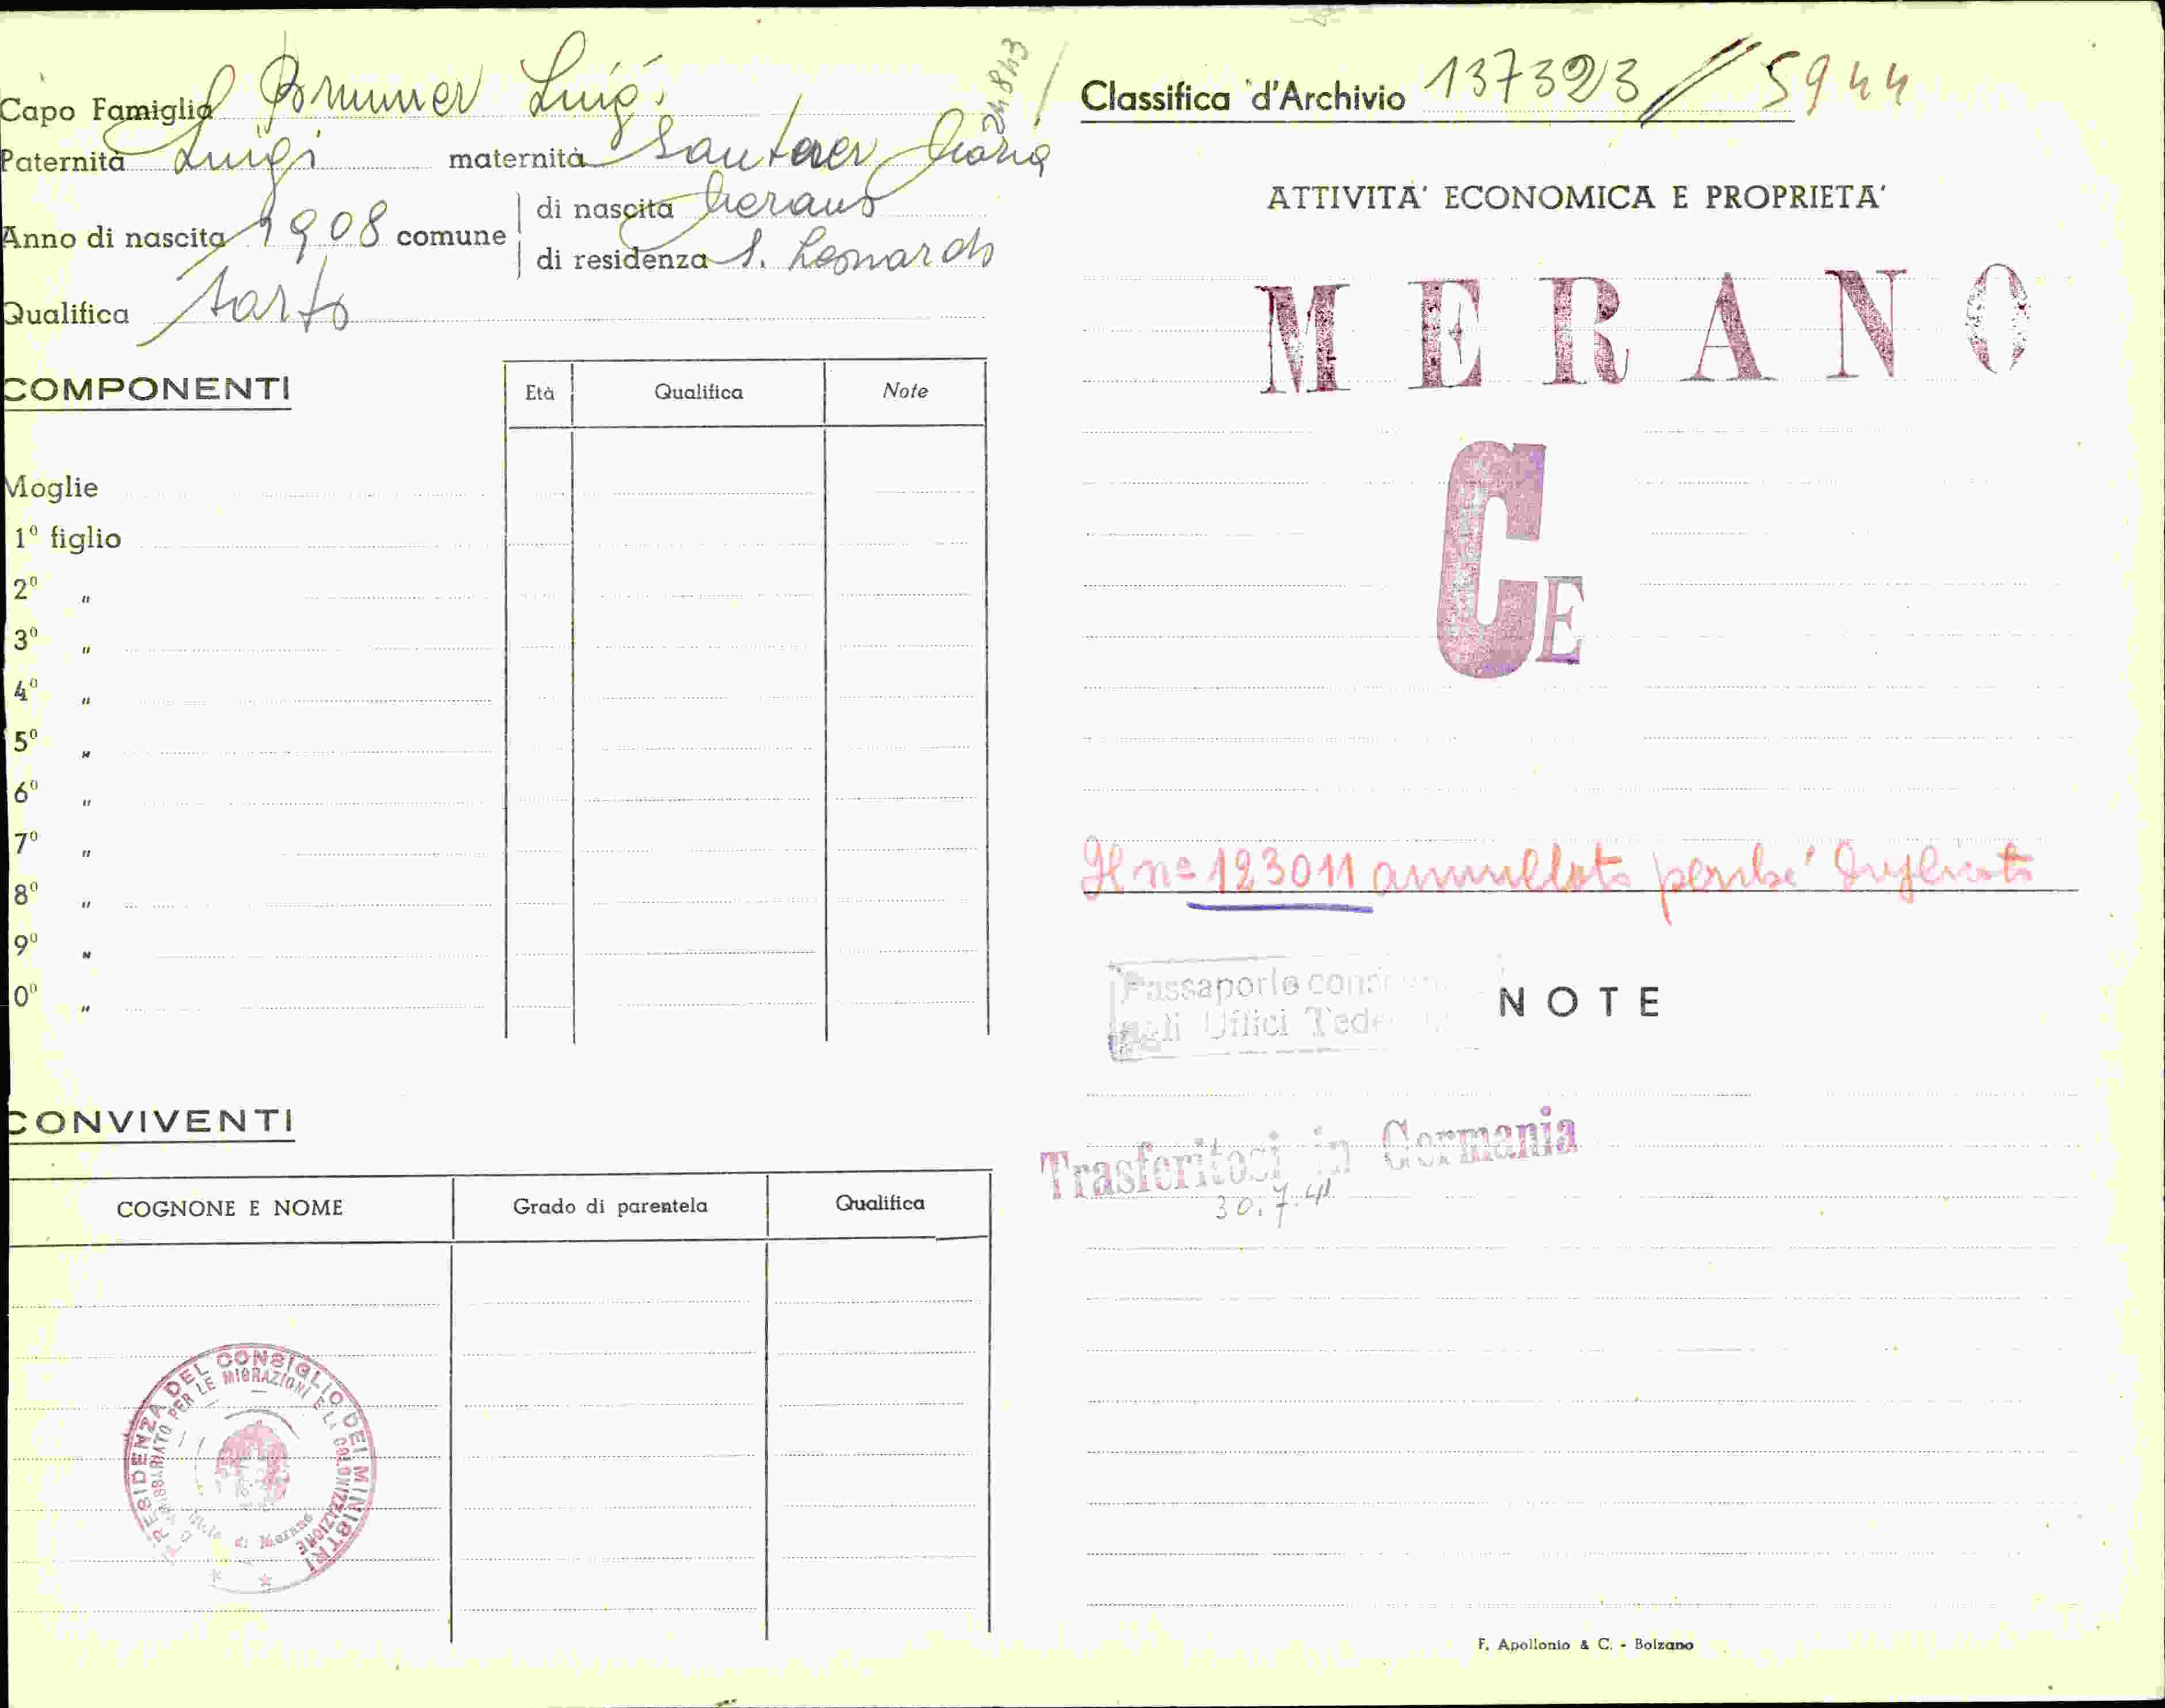 Capo Famiglia Brunner Luigi
Paternità Luigi maternità Santner Maria
Anno di nascita 1908 comune di nascita Merano
di residenza S. Leonardo
Qualifica Sarto
COMPONENTI
Età Qualifica Note
Moglie
1º figlio
2º "
3º "
4º "
5º "
6º "
7º "
8º "
9º "
0º "
CONVIVENTI
COGNONE E NOME Grado di parentela Qualifica
PRESIDENZA DEL CONSIGLIO DEI MINISTRI
COMMISSARIATO PER LE MIGRAZIONI E LA COLONIZZAZIONE
di Merano
Classifica d'Archivio 137323 // 5944
ATTIVITA' ECONOMICA E PROPRIETA'
MERANO
CE
Il nº 123011 annullato perché duplicato
Passaporto
Uffici
NOTE
Trasferitosi in Germania
30.7.41
F. Apollonio & C. - Bolzano